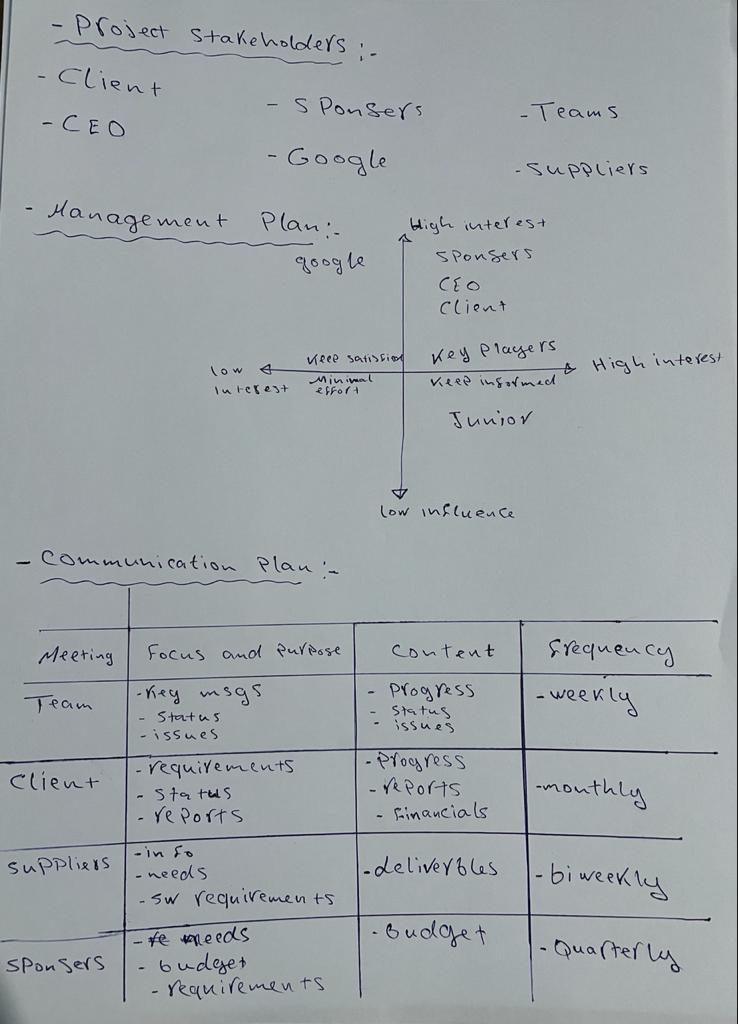 - Project Stakeholders :-
- Client
- CEO
- SPonsers
- Google
- Teams
- Suppliers
- Management Plan :-
High interest
google
SPonsers
CEO
Client
Keep satisfied
Key Players
low interest
High interest
Minimal effort
Keep informed
Junior
low influence
- Communication Plan :-
Meeting Focus and Purpose Content frequency
Team
- Key msgs
- Status
- issues
- Progress
- Status
- issues
- weekly
Client
- requirements
- status
- reports
- Progress
- reports
- Financials
- monthly
Suppliers
- info
- needs
- sw requirements
- deliverbles
- biweekly
SPonsers
- needs
- budget
- requirements
- Budget
- Quarterly